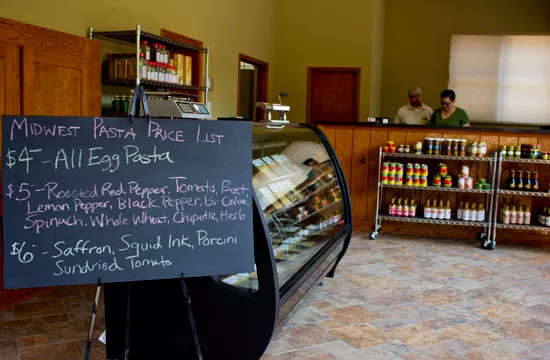 Midwest Pasta Price List
$4 - All Egg Pasta
$5 - Roasted Red Pepper, Tomato, Beet,
Lemon Pepper, Black Pepper, Bi-Color
Spinach, Whole Wheat, Chipotle, Herb
$6 - Saffron, Squid Ink, Porcini
Sundried Tomato